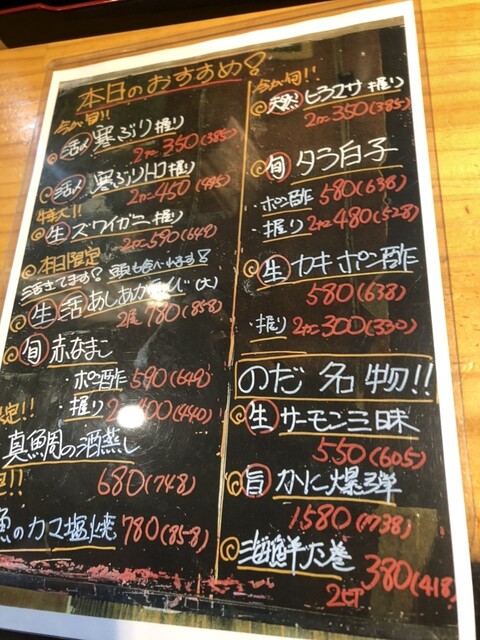 本日のおすすめ♪
今が旬!!
活〆 寒ぶり 握り
2カン 350(385)
活〆 寒ぶりトロ 握り
2カン 450(495)
特大!!
生 ズワイガニ 握り
2カン 590(649)
本日限定
活きてます♪ 頭も食べれます♪
生 活あしあかえび(大)
2尾 780(858)
旬 赤なまこ
・ポン酢 590(649)
・握り 2カン 400(440)
定!!
真鯛の酒蒸し
680(748)
魚のカマ塩焼 780(858)
今が旬!!
天然 ヒラマサ 握り
2カン 350(385)
旬 タラ白子
・ポン酢 580(638)
・握り 2カン 480(528)
生 カキ ポン酢
580(638)
・握り 2カン 300(330)
のだ 名物!!
生 サーモン三昧
550(605)
旨 かに爆弾
1580(1738)
海鮮太巻
2ケ 380(418)